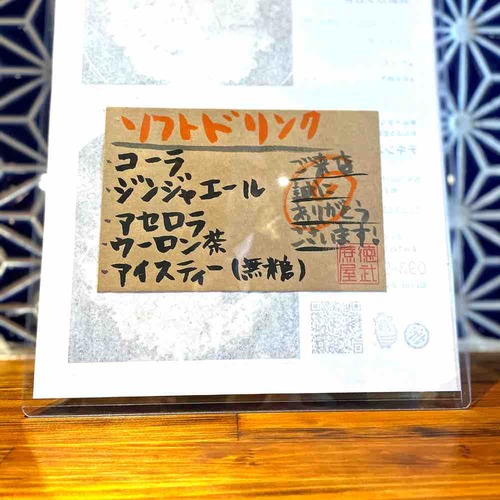 ソフトドリンク
・コーラ
・ジンジャエール
・アセロラ
・ウーロン茶
・アイスティー(無糖)
ご来店
誠に
ありがとう
ございます!